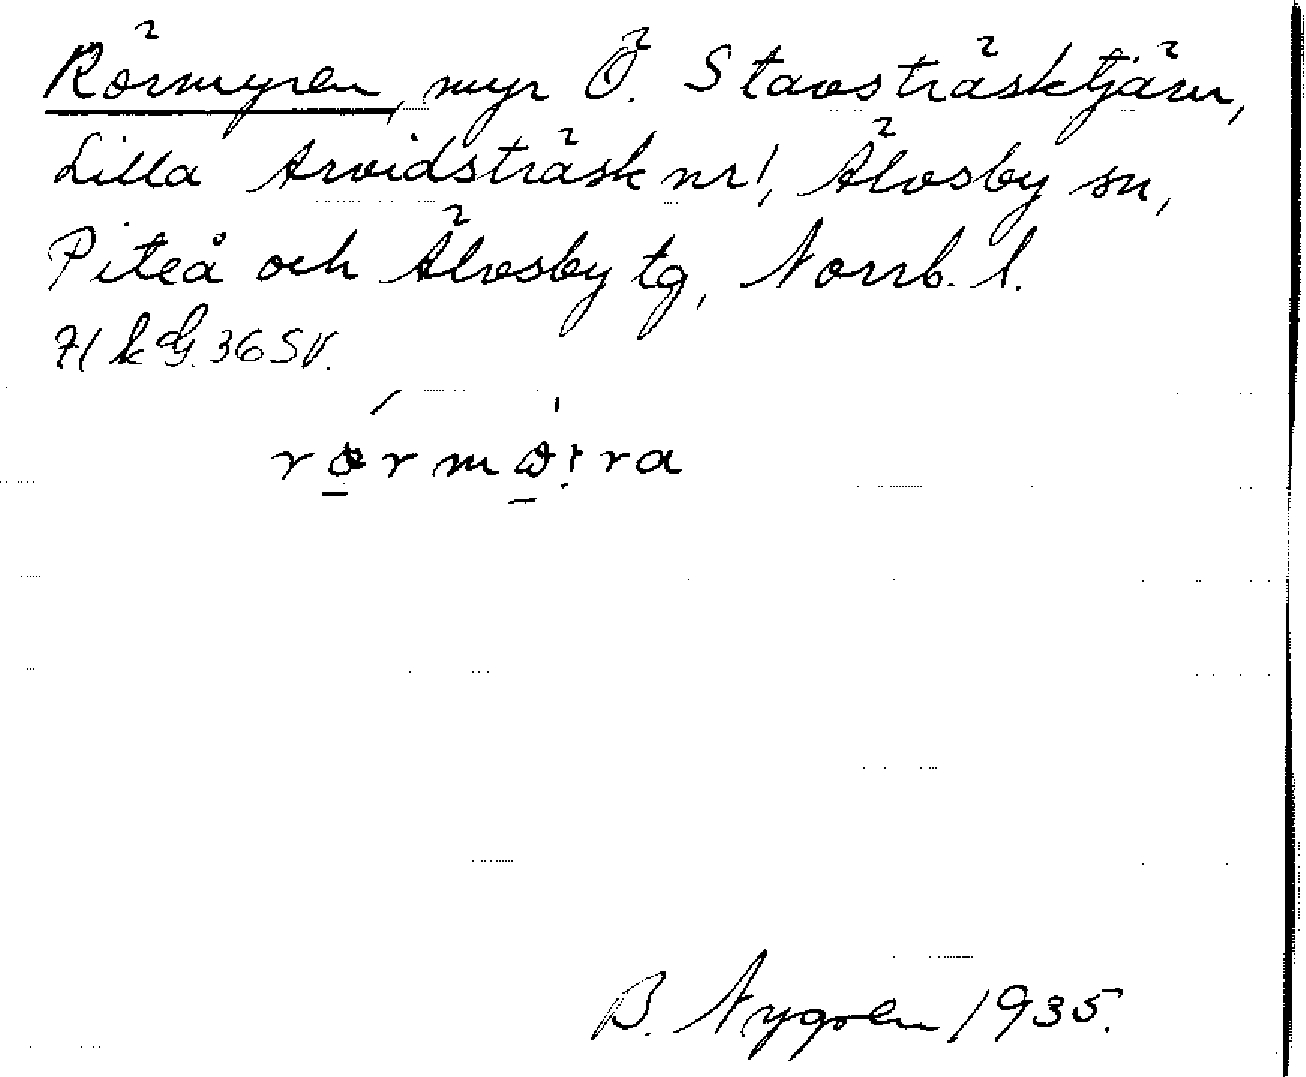 Rörmyren, myr Ö. Stavsträsktjärn,
Lilla Arvidsträsk nr 1, Älvsby sn,
Piteå och Älvsby tg, Norrb. l.
71 k G. 36 SV.
B. Nygren 1935.